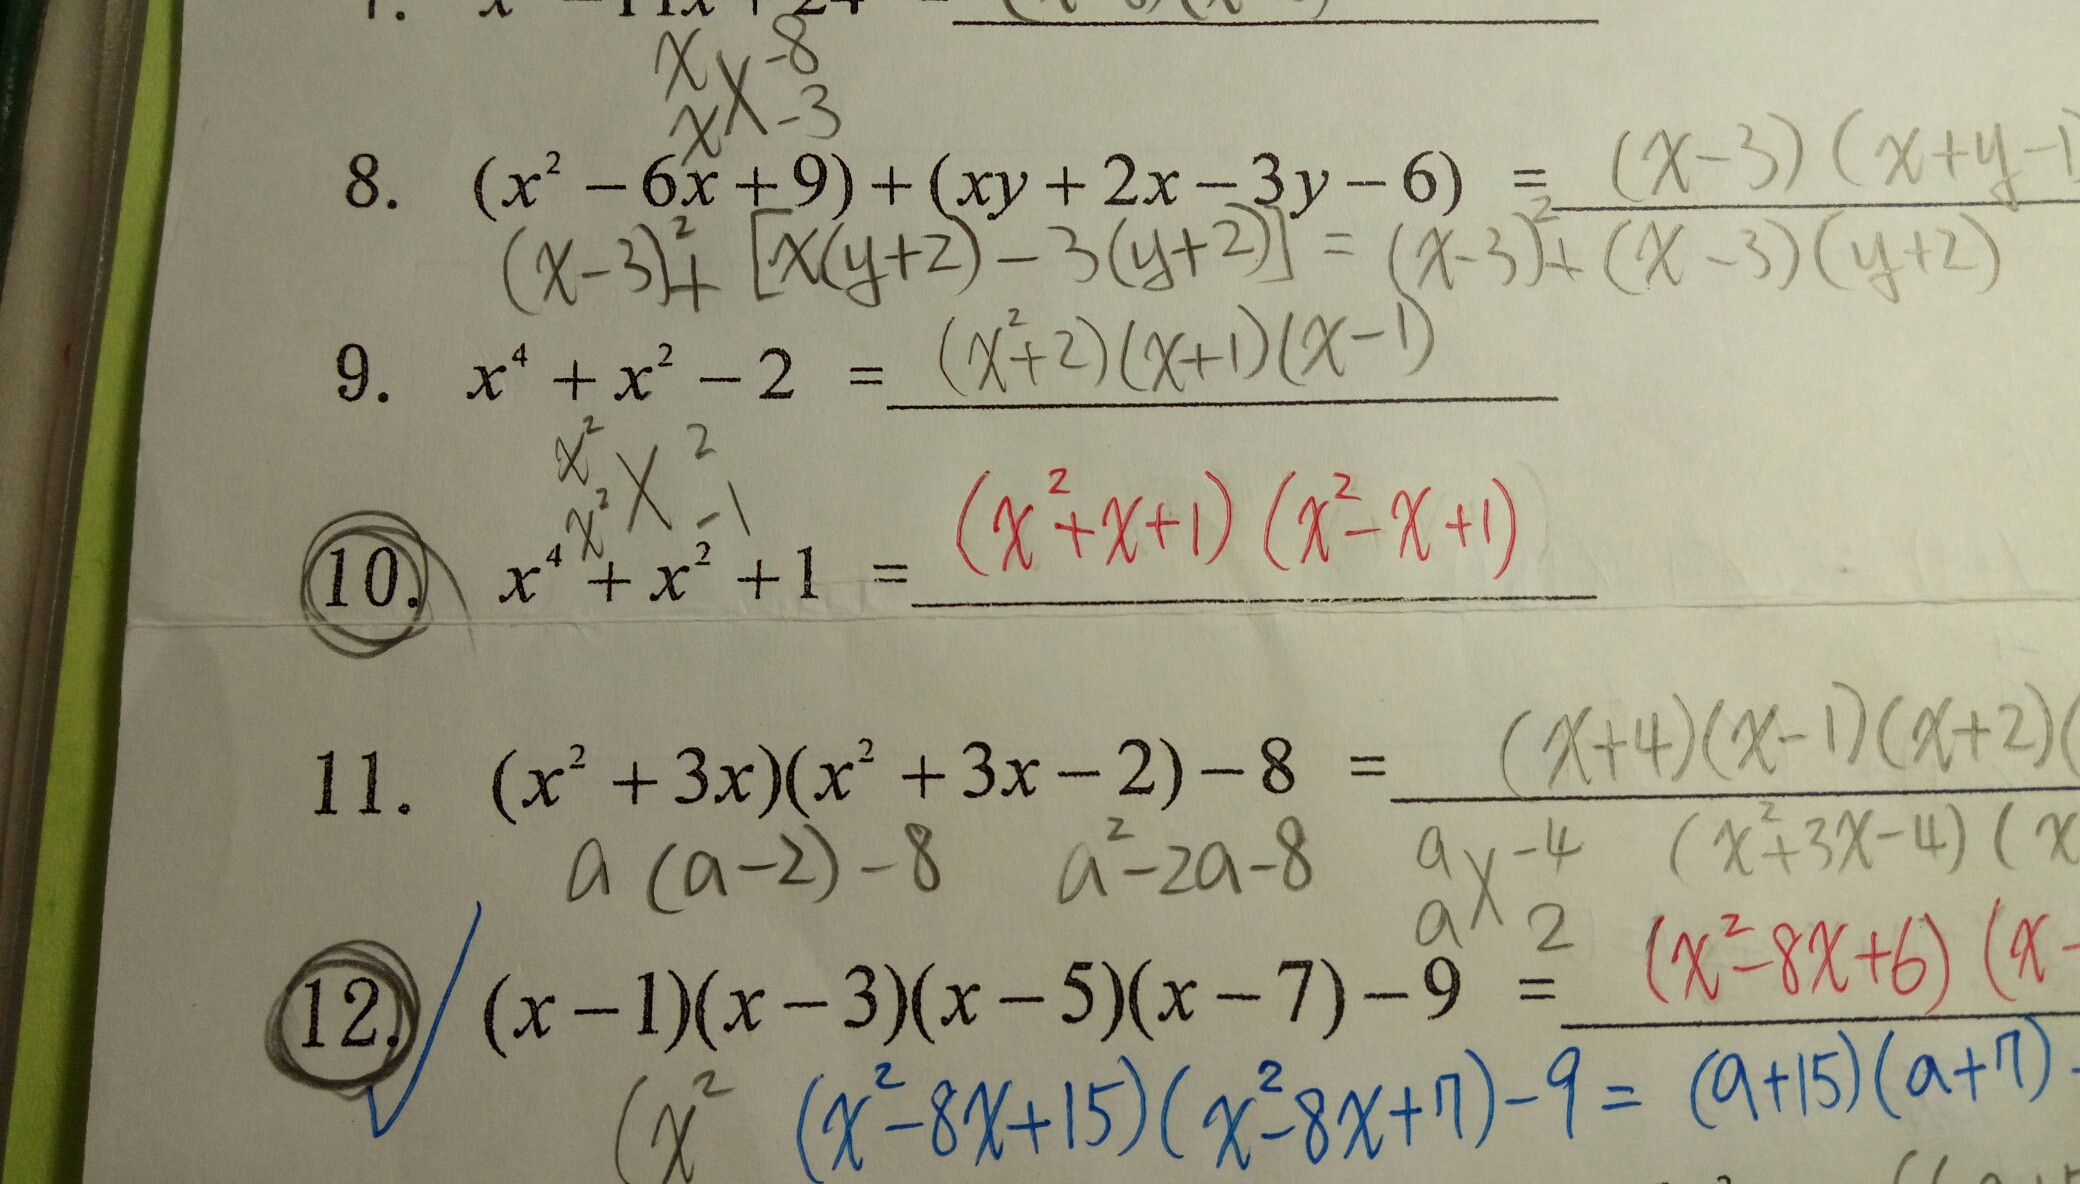 x - 11x + 24 =
x -8
x -3
8. (x² - 6x + 9) + (xy + 2x - 3y - 6) = (x-3)(x+y-1)
(x-3)² + [x(y+2) - 3(y+2)] = (x-3)² + (x-3)(y+2)
9. x⁴ + x² - 2 = (x²+2)(x+1)(x-1)
x² 2
x² -1
10. x⁴ + x² + 1 = (x²+x+1)(x²-x+1)
11. (x² + 3x)(x² + 3x - 2) - 8 = (x+4)(x-1)(x+2)(
a(a-2)-8 a²-2a-8 a -4 (x²+3x-4)(x
a 2
12. (x-1)(x-3)(x-5)(x-7)-9 = (x²-8x+6)(x-
(x² (x²-8x+15)(x²-8x+7)-9 = (a+15)(a+7)-